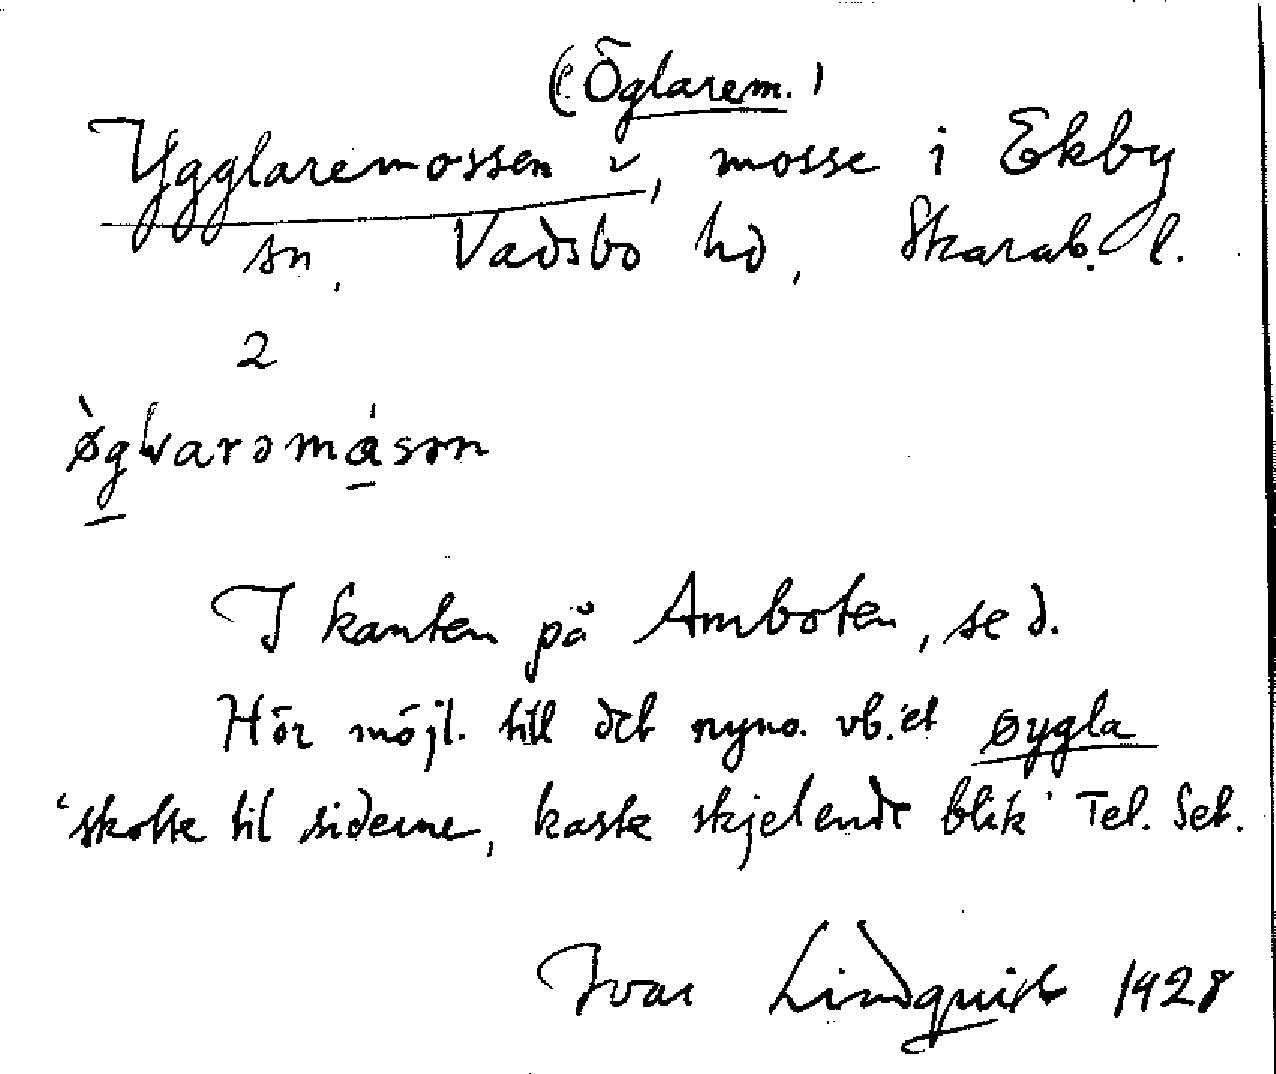 (Öglarem.)
Ygglaremossen v, mosse i Ekby
sn, Vadsbo hd, Skarab. l.
2
I kanten på Amboten, se d.
Hör möjl. till det nyno. vb:et øygla
'skotte til siderne, kaste skjelende blik' Tel. Set.
Ivar Lindquist 1928